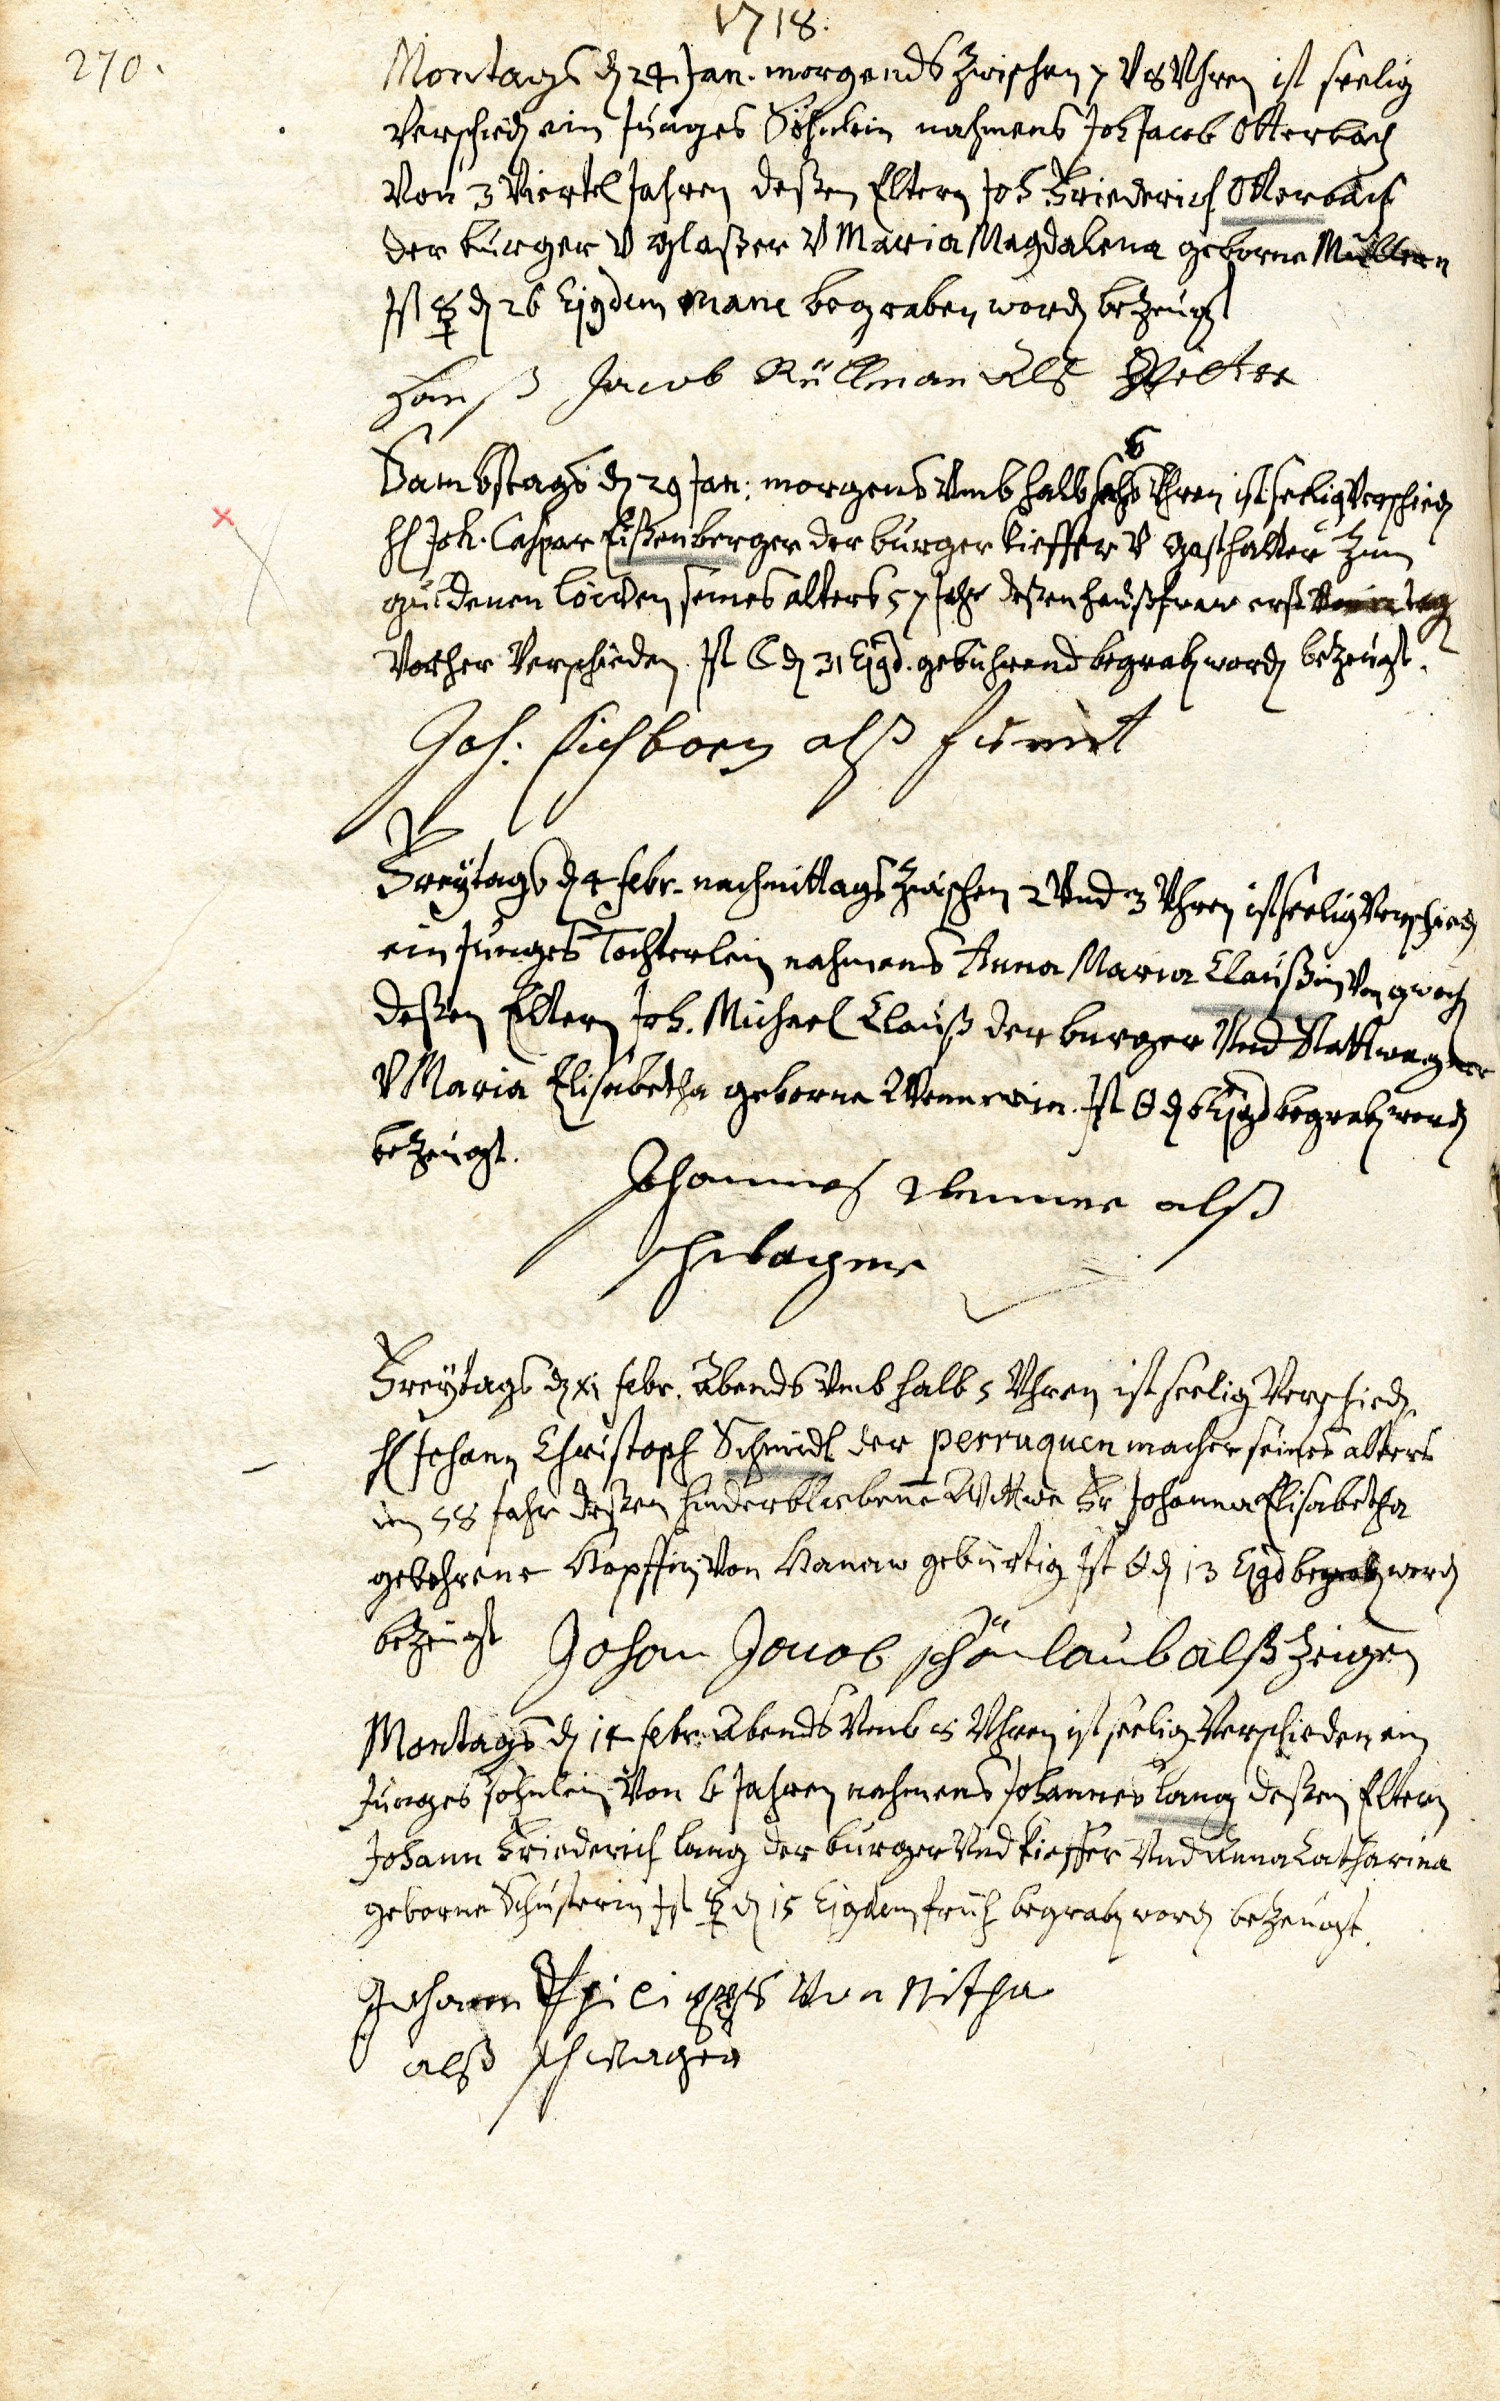 1718.
270.
Montags d 24 Jan. morgends zwischen 7 V 8 Uhren ist seelig
Verschied ein Junges Söhnlein nahmens Joh Jacob Otterbach
Von 3 Viertel Jahren deßen Eltern Joh Friederich Otterbach
der burger V glaßer V Maria Magdalena geborne Müllern
Ist ☿ d 26 Ejusdem mane begraben word bezeugt
Hanß Jacob Rüllman Als Petter
Sambstags d 29 Jan: morgens Umb halb 6 Uhren ist seelig Verschied
H Joh. Caspar Eißenberger der burger kieffer V gasthalter zum
guldenen löwen seines alters 57 Jahr deßen haußfraw erst tag
Vorher Verschieden. Ist ☾ d 31 Ejusd. gebührend begrab word bezeugt.
Joh. Eichhorn alß freündt
Freytags d 4 febr. nachmittags zwischen 2 Und 3 Uhren ist seelig Verschied
ein Junges Töchterlein nahmens Anna Maria Claußin Von 9 woch
deßen Eltern Joh. Michael Clauß der burger Und Stattwagner
V Maria Elisabetha geborne Wennerin. Ist ☉ d 6 Ejusd begrab word
bezeugt.
Johannes Wenner alß
schwager
Freytags d xi febr. Abends Umb halb 5 Uhren ist seelig Verschied.
H Johann Christoph Schmidt der perruquen macher seines alters
im 58 Jahr deßen hinderbliebene Wittwe Fr Johanna Elisabetha
gebohrene Kopffin Von Hanaw gebürtig Ist ☉ d 13 Ejusd begrab word
bezeugt
Johan Jacob schönlaub alß zeigen
Montags d 14 febr. Abends Umb 5 Uhren ist seelig Verschieden ein
Junges söhnlein Von 6 Jahren nahmens Johannes Lang deßen Eltern
Johann Friederich Lang der burger Und kieffer Und Anna Catharina
geborne Schusterin Ist d 15 Ejusdem früh begrab word bezeugt.
Johann Philipps Von Nitha
alß schwager